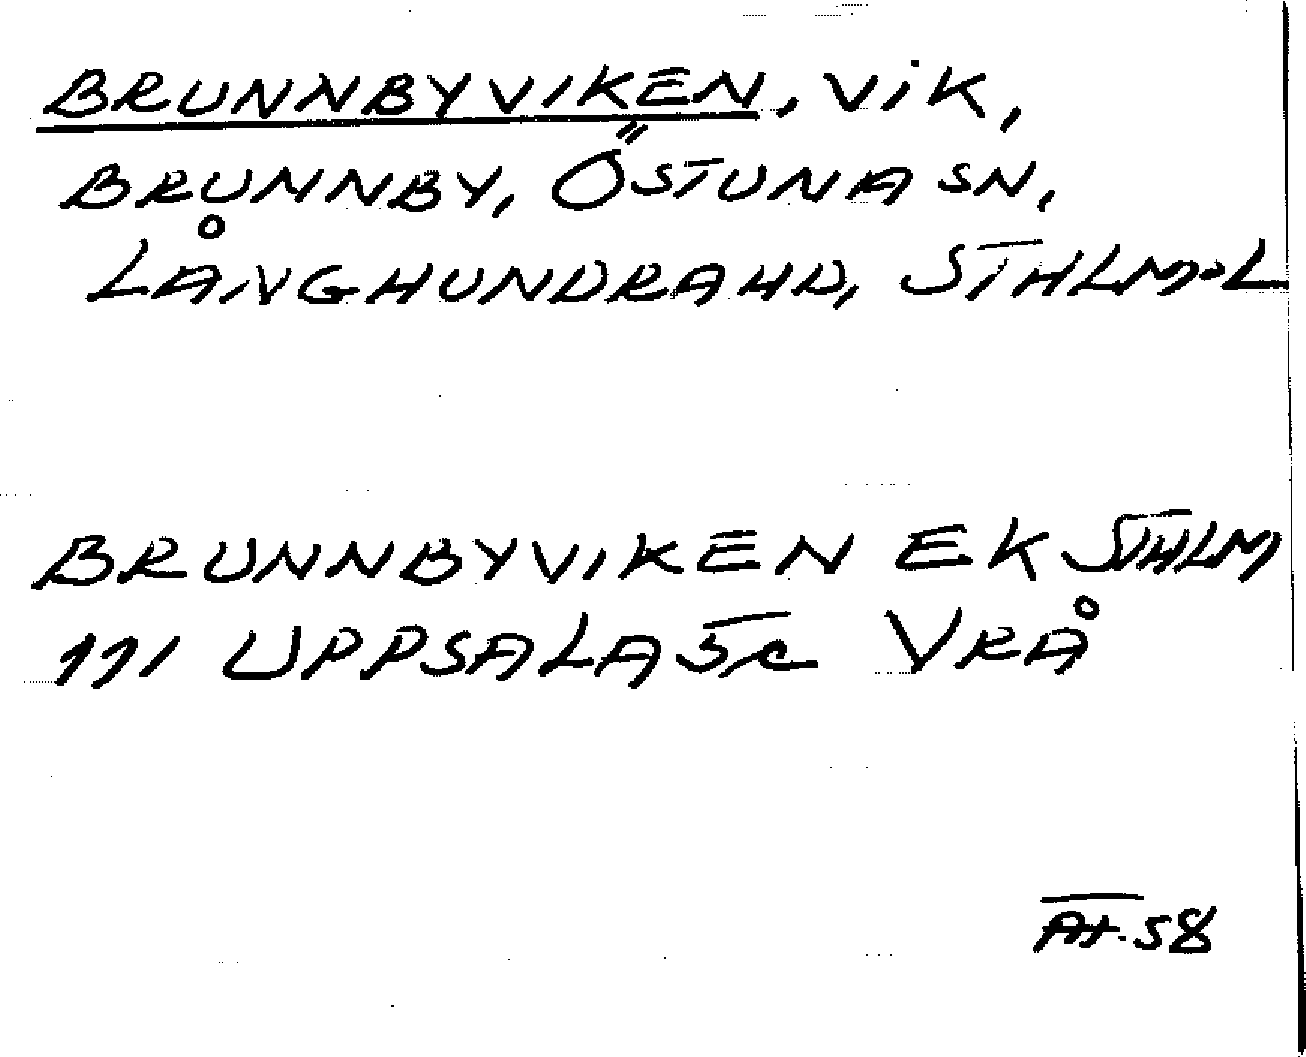 BRUNNBYVIKEN, VIK,
BRUNNBY, ÖSTUNA SN,
LÅNGHUNDRA HD, STHLMS L
BRUNNBYVIKEN EK STHLM
111 UPPSALA SÖ VRÅ
AT. 58